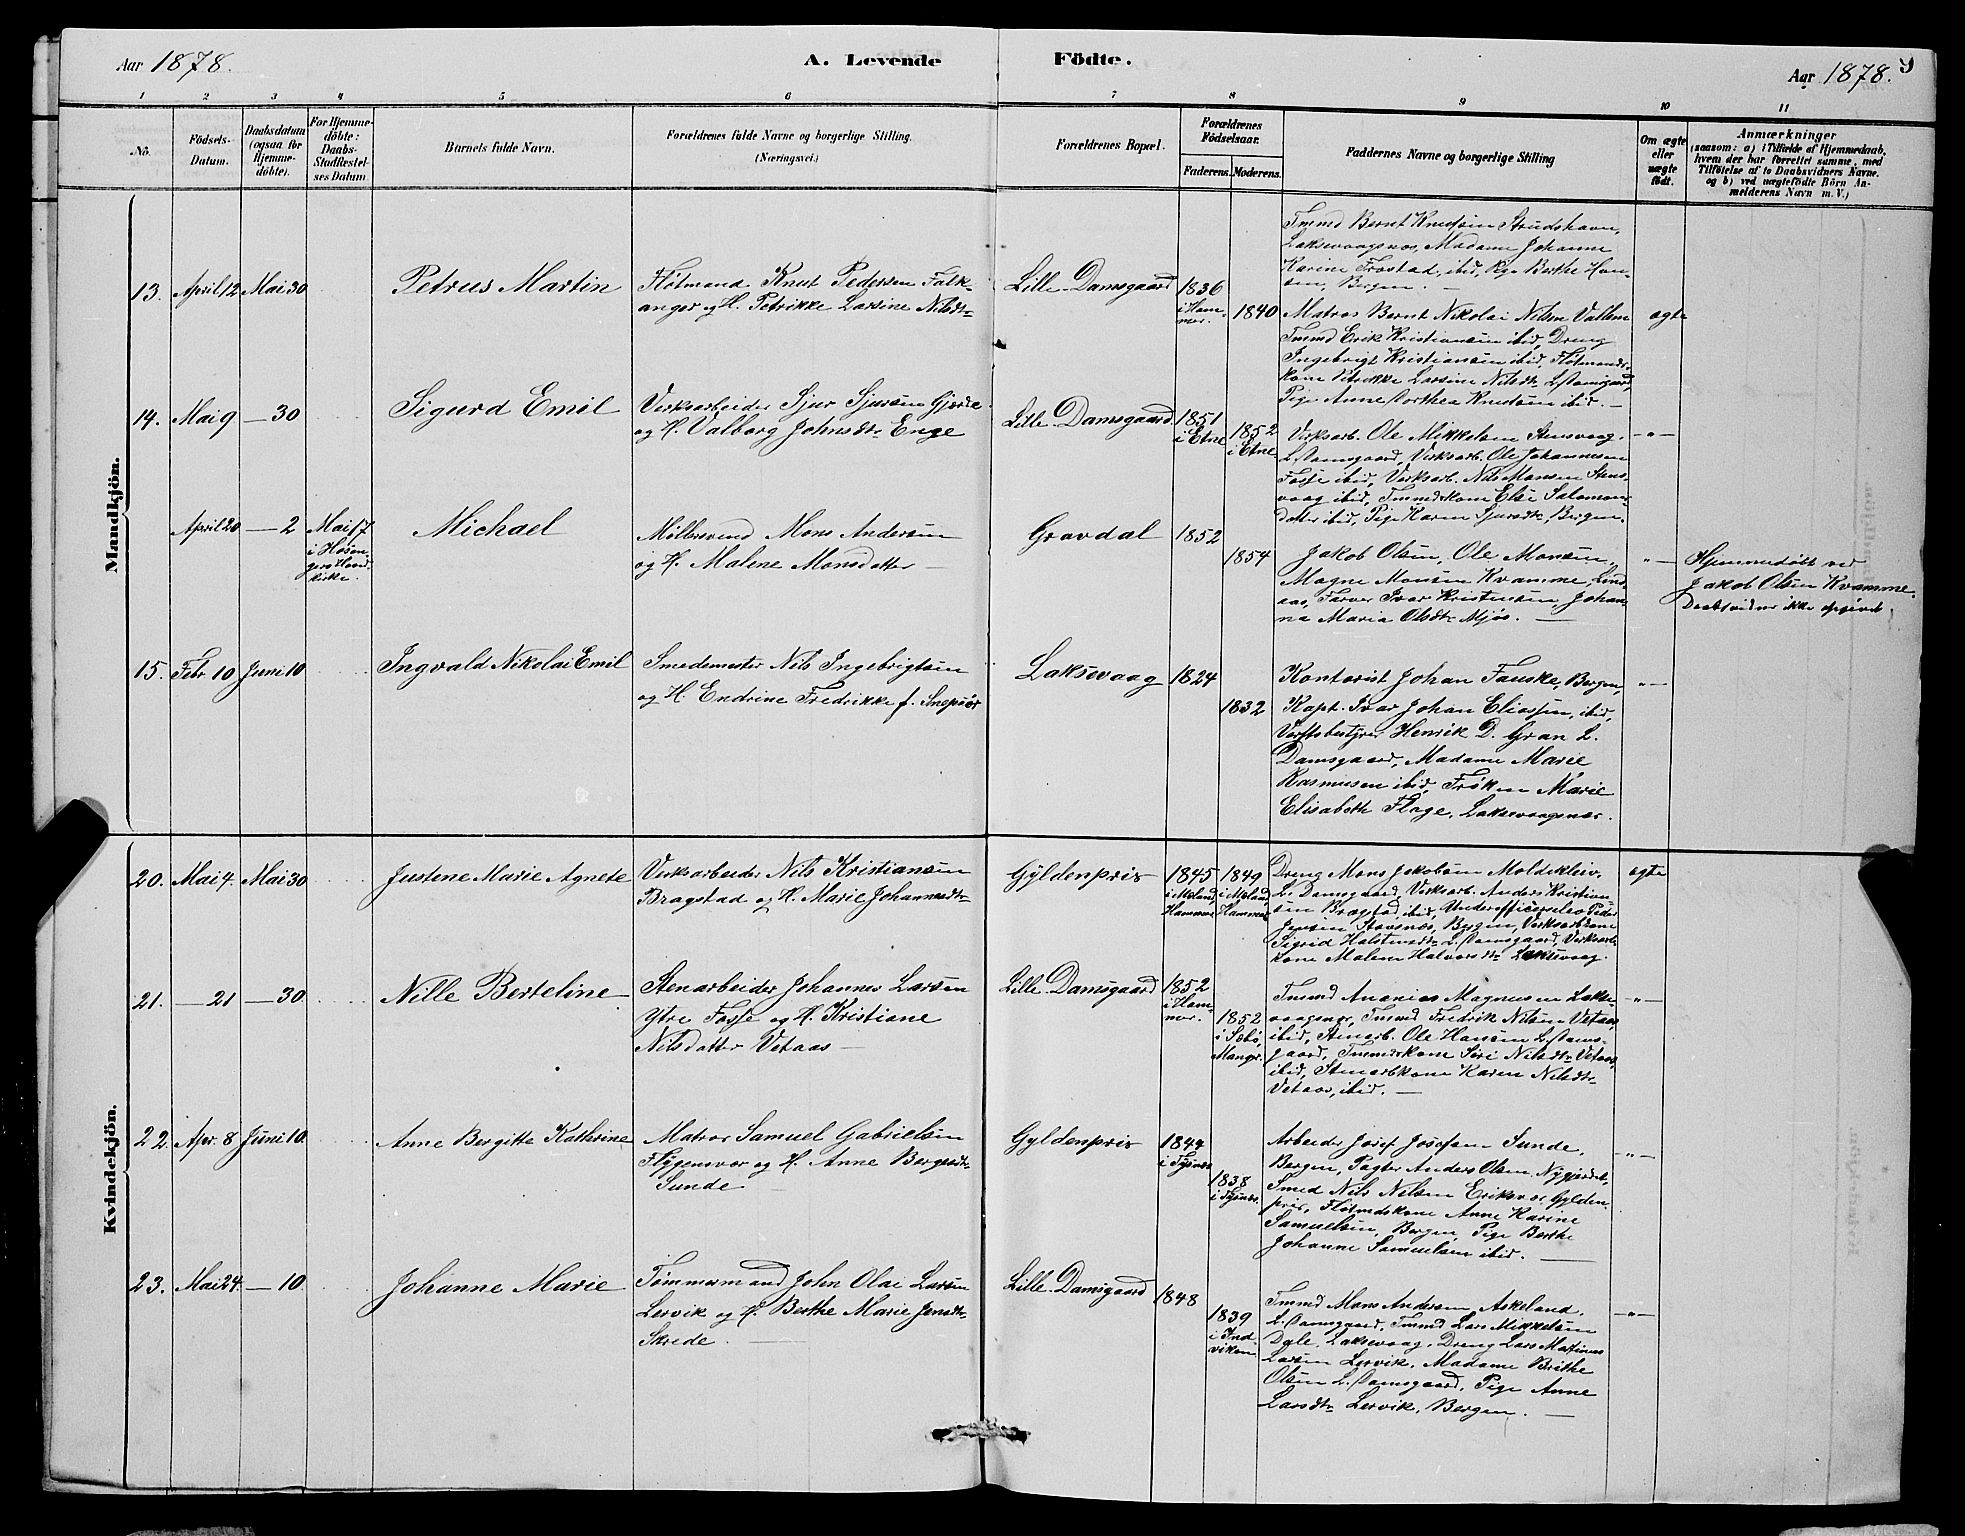 Aar 1878.
A. Levende Födte.
Aar 1878.
9
1 2 3 4 5 6 7 8 9 10 11
No.
Födsels-Datum.
Daabsdatum (ogsaa for Hjemme-döbte).
For Hjemme-döbte: Daabs-Stadfæstel-ses Datum.
Barnets fulde Navn.
Forældrenes fulde Navne og borgerlige Stilling.
(Næringsvei.)
Forældrenes Bopæl.
Forældrenes Födselsaar.
Faderens.
Moderens.
Faddernes Navne og borgerlige Stilling
Om ægte eller uægte födt.
Anmærkninger
(saasom: a) i Tilfælde af Hjemmedaab,
hvem der har forrettet samme, med
Tilföielse af to Daabsvidners Navne.
og b) ved uægtefödte Börn An-
melderens Navn m. V.)
Mandkjön.
13. April 12 Mai 30
Petrus Martin
Fløtmand Knut Pedersen Falk-
anger og H. Petrikke Larsine Nilsdtr
Lille Damsgaard
1836
i Ham-
mer.
1840
Tmmd Bernt Knudsen Strudshavn,
Laksevaagsnæs, Madame Johanne
Karine Frostad, ibid, Pige Berthe Han-
sen, Bergen. —
Matros Bernt Nikolai Nilsen
ægte
14. Mai 9 — 30
Sigurd Emil
Verksarbeider Sjur Sjursen Gjerde
og H. Valborg Johnsdtr Enge
Lille Damsgaard
1851
i Etne
1852
i Etne
Tmmd Erik Kristiansen ibid, Dreng
Ingebrigt Kristiansen ibid, Fløtmands-
kone Petrikke Larsine Nilsdtr L. Damsgaard,
Pige Anne Dorthea Knudsen ibid. —
Verksarb. Ole Mikkelsen Stensvaag,
L. Damsgaard, Verksarb. Ole Johannesen
Fosse ibid, Verksarb. Nils Monsen Stens-
vaag ibid, Tmmdskone Else Salomons-
datter ibid, Pige Karen Sjursdtr, Bergen.
— " —
April 20 — 2 Mai 17
i Høsen-
gers Hoved-
kirke.
Michael
Møllersvend Mons Andersen
og H. Malene Monsdatter —
Gravdal
1852
1854
Jakob Olsen, Ole Monsen,
Magne Monsen Kvamme, Lind-
aas, Farver Ivar Kristensen, Johan-
na Maria Olsdtr Mjøs. —
" —
Hjemmedøbt ved
Jakob Olsen Kvamme.
Daabsvidner ikke opgivet.
15. Febr 10 Juni 10
Ingvald Nikolai Emil
Smedemester Nils Ingebrigtsen
og H. Endrine Fredrikke f.
Laksevaag
1824
1832
Kontorist Johan Fauske, Bergen,
Kapt. Ivar Johan Eliassen, ibid,
Verftsbestyrer Henrik D. Gran L.
Damsgaard, Madame Marie
Rasmusen ibid, Frøken Marie
Elisabeth Flage, Laksevaagsnæs.
" —
Kvindekjön.
20. Mai 4. Mai 30
Justene Marie Agnete
Verksarbeider Nils Kristiansen
Bragstad og H. Marie Johannesdtr
Gyldenpris
1845
i
Hammer
1849
i
Hammer
Dreng Mons Jakobsen Moldekleiv,
L. Damsgaard, Verksarb. Anders Kristian-
sen Bragstad, ibid, Underofficerselev Peder
Jensen Stavsnes, Bergen, Verksarbkone
Sigrid Halstensdtr L. Damsgaard, Verksarb.
kone Malene Halvorsdtr Laksevaag.
ægte
21. — 21 — 30
Nille Berteline
Stenarbeider Johannes Larsen
Ytre Fosse og H. Kristiane
Nilsdatter Vetaas —
Lille Damsgaard
1852
i Ham-
mer.
1852
i Sæbø,
Manger.
Tmmd Ananias Magnesen Lakse-
vaagsnæs, Tmmd Fredrik Nilsen Vetaas,
ibid, Stenarb. Ole Hansen L. Dams-
gaard, Tmmdskone Siri Nilsdtr Vetaas,
ibid, Stenarbkone Karen Nilsdtr
Vetaas, ibid. —
— " —
22. Apr. 8 Juni 10
Anne Bergitte Kathrine
Matros Samuel Gabrielsen
Flygensvær og H. Anne
Sunde —
Gyldenpris
1844
i Tysnæs
1838
i Tysnæs.
Arbeider Josef Josefsen Sunde,
Bergen, Pagter Anders Olsen, Nygjerdet,
Smed Nils Nilsen Eriksvær Gylden-
pris, Fløtmdskone Anne Karine
Samuelsen, Bergen, Pige Berthe
Johanne Samuelsen ibid. —
— " —
23. Mai 24. — 10
Johanne Marie
Tømmermand John Olai Larsen
Lervik og H. Berthe Marie Jensdtr
Skrede. —
Lille Damsgaard
1848
1839
i Ind-
viken
Tmmd Mons Andersen Askeland,
L. Damsgaard, Tmmd Lars Mikkelsen
Dale, Laksevaag, Dreng Lars Martinus
Larsen Lervik, Madame Brithe
Olsen L. Damsgaard, Pige Anne
Larsdtr Lervik, Bergen. —
— " —